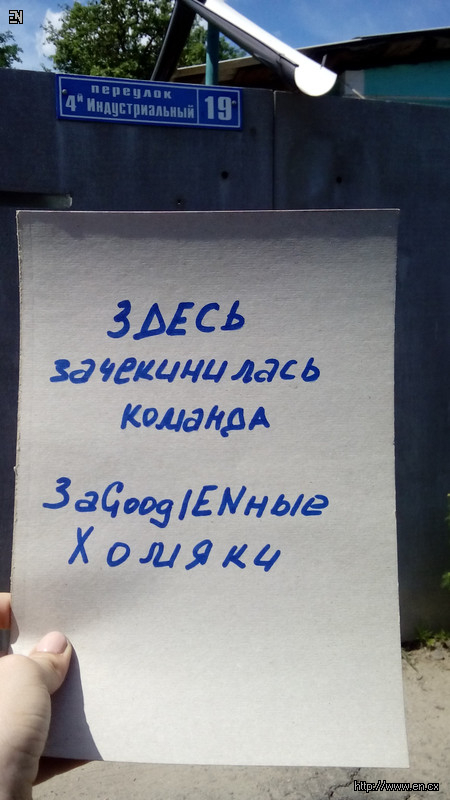 EN
переулок
4й Индустриальный 19
ЗДЕСЬ
зачекинилась
команда
ЗаGooglENные
Хомяки
http://www.en.cx